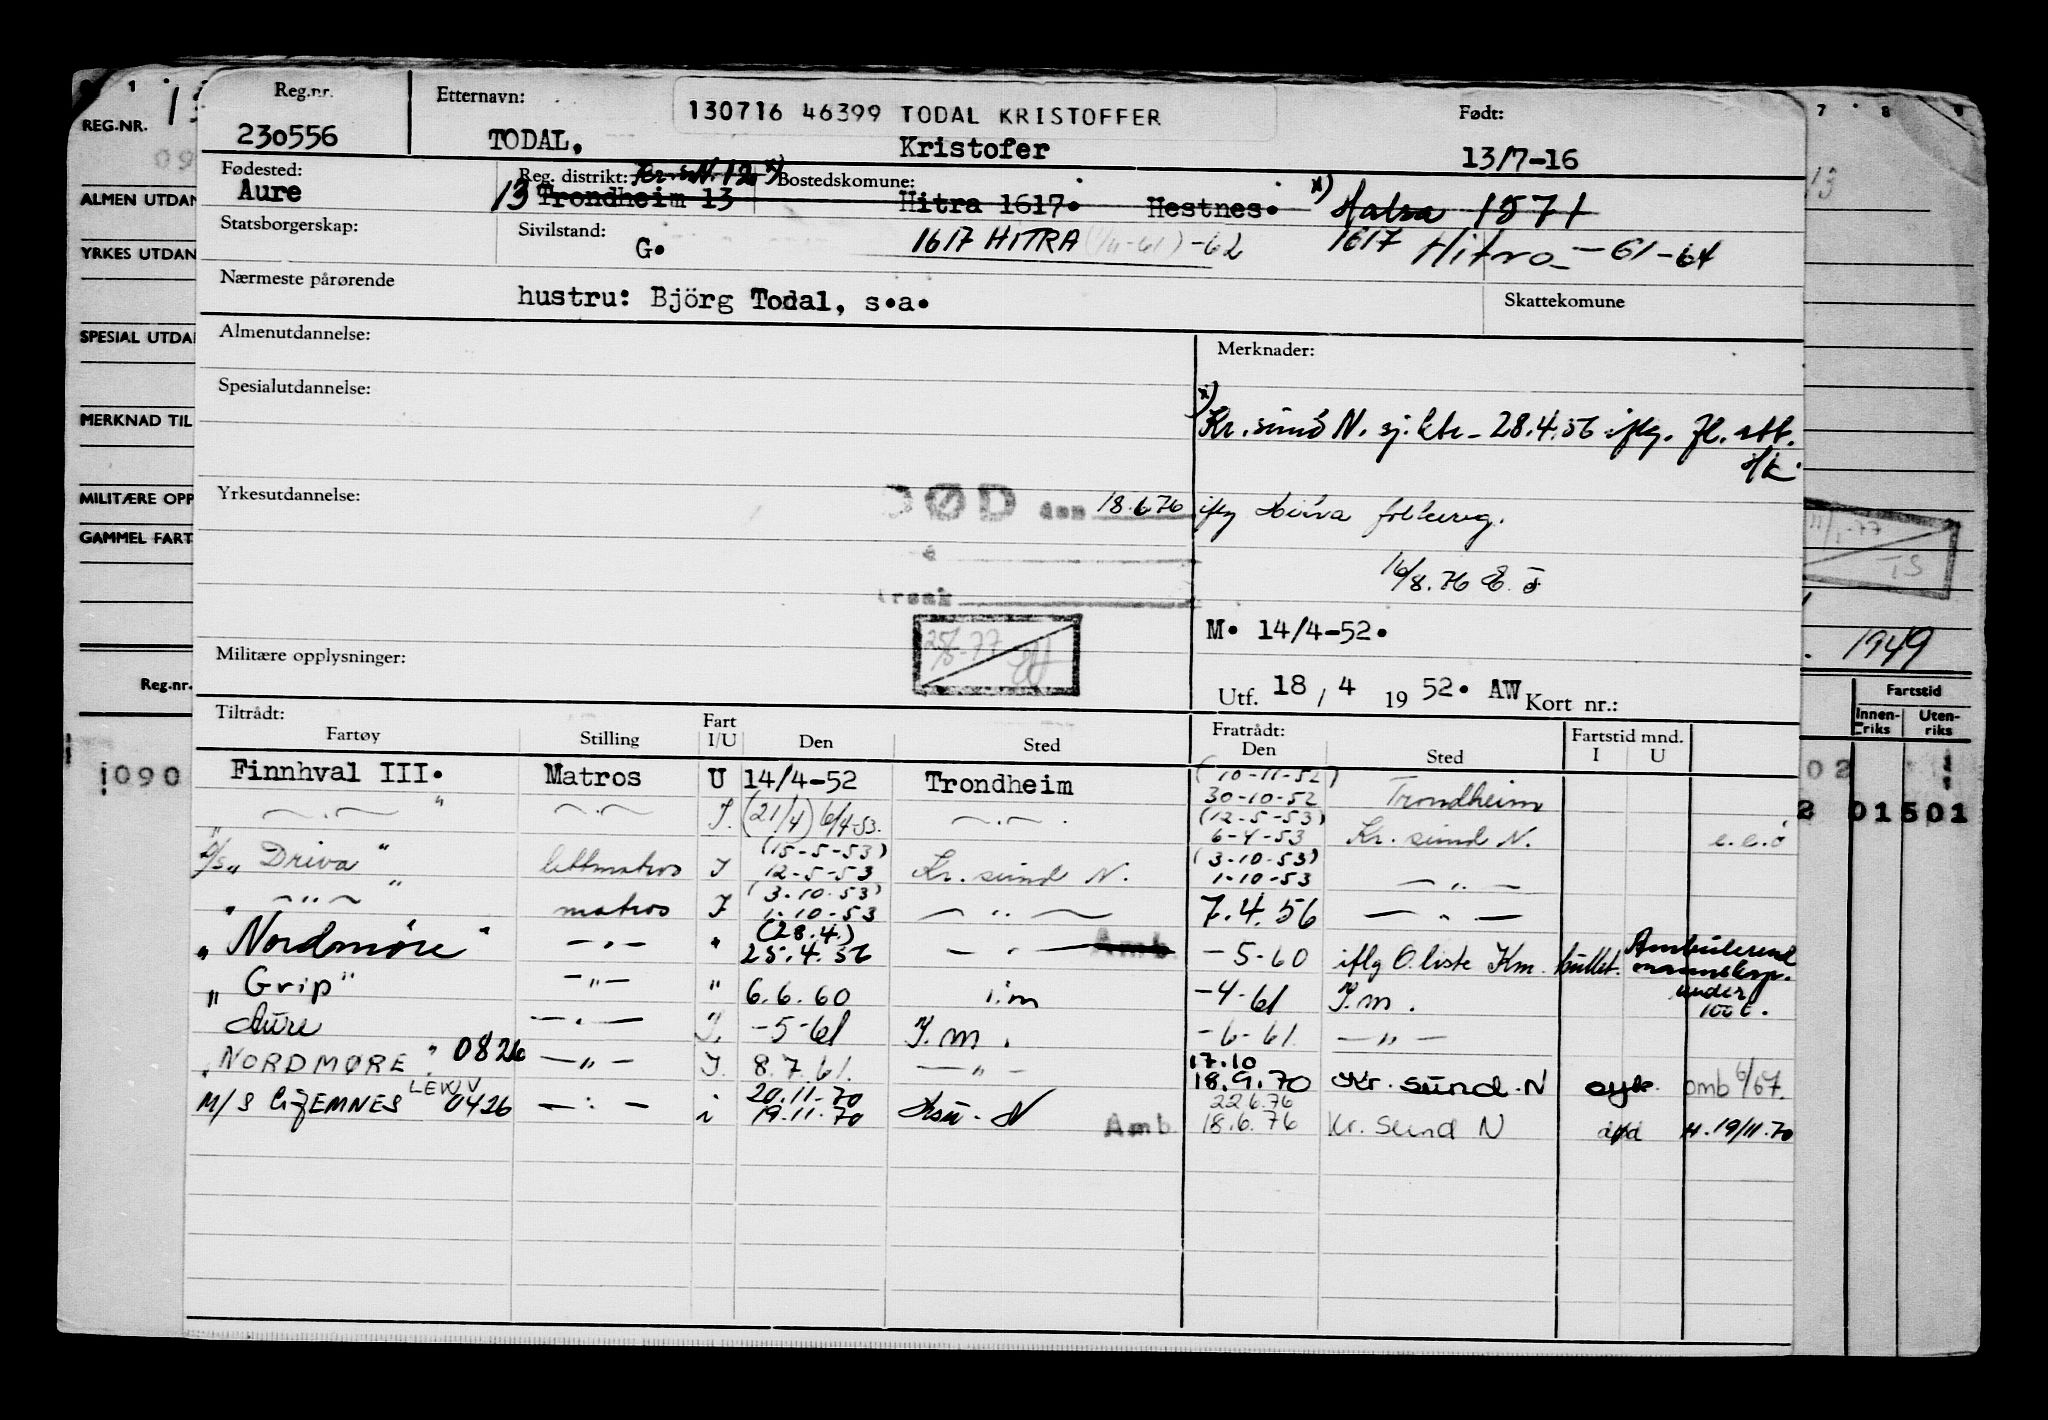 REG.NR.
ALMEN UTDAN
YRKES UTDAN
SPESIAL UTDA
MERKNAD TIL
MILITÆRE OPP
GAMMEL FART
Reg.nr.
090
Reg.nr. Etternavn: 130716 46399 TODAL KRISTOFFER Født:
230556 TODAL, Kristofer 13/7-16
Fødested: Reg. distrikt: Kr.sN.12 x) Bostedskomune:
Aure 13 Trondheim 13 Hitra 1617. Hestnes. x) Halsa 1571
Statsborgerskap: Sivilstand: G. 1617 HITRA (1/11-61) -62 1617 Hitra -61-64
Nærmeste pårørende hustru: Björg Todal, s.a. Skattekomune
Almenutdannelse: Merknader:
Spesialutdannelse: x)
Kr.sund N. sj.ktr. 28.4.56 iflg. fl. att.
Yrkesutdannelse: DØD den 18.6.76 iflg Hitra folkereg.
16/8.76 E.ø
rsak
M. 14/4-52.
25/8-77
Militære opplysninger: Utf. 18 / 4 19 52. AW Kort nr.:
Tiltrådt: Fratrådt:
Fartøy Stilling Fart I/U Den Sted Den Sted Fartstid mnd. I U
Finnhval III. Matros U 14/4-52 Trondheim (10-11-52) 30-10-52 Trondheim
—.— " —.— I. (21/4) 6/4-53. —.— (12-5-53) 6-4-53 Kr. sund N. e.e.ø
D/S " Driva " lettmatros I (15-5-53) 12-5-53 Kr. sund N. (3-10-53) 1-10-53 — " —
" — " — " matros I (3.10.53) 1.10-53 — " — 7.4.56 — " —
" Nordmøre " — " — " (28.4.) 25.4.56 — " — Amb -5-60 iflg O.liste Km. hullet. Ambulerend mannskap. under 100 t.
" Grip " — " — " 6.6.60 i.m -4-61 I.m.
Aure — . — I. -5-61 I.m. -6-61. — " —
" NORDMØRE " 0826 — " — I. 8.7.61. — " — 17.10 18.9.70 Kr. sund.N syk. omb 6/67.
M/S GJEMNES LEWV 0426 — . — i 20.11.70 19.11.70 Ksu. N Amb 22.6.76 18.6.76 Kr. Sund N død H. 19/11.70
7 8 9
13
11/1-77
TS
1949
Fartstid
Innen-riks Uten-riks
02
2 01501